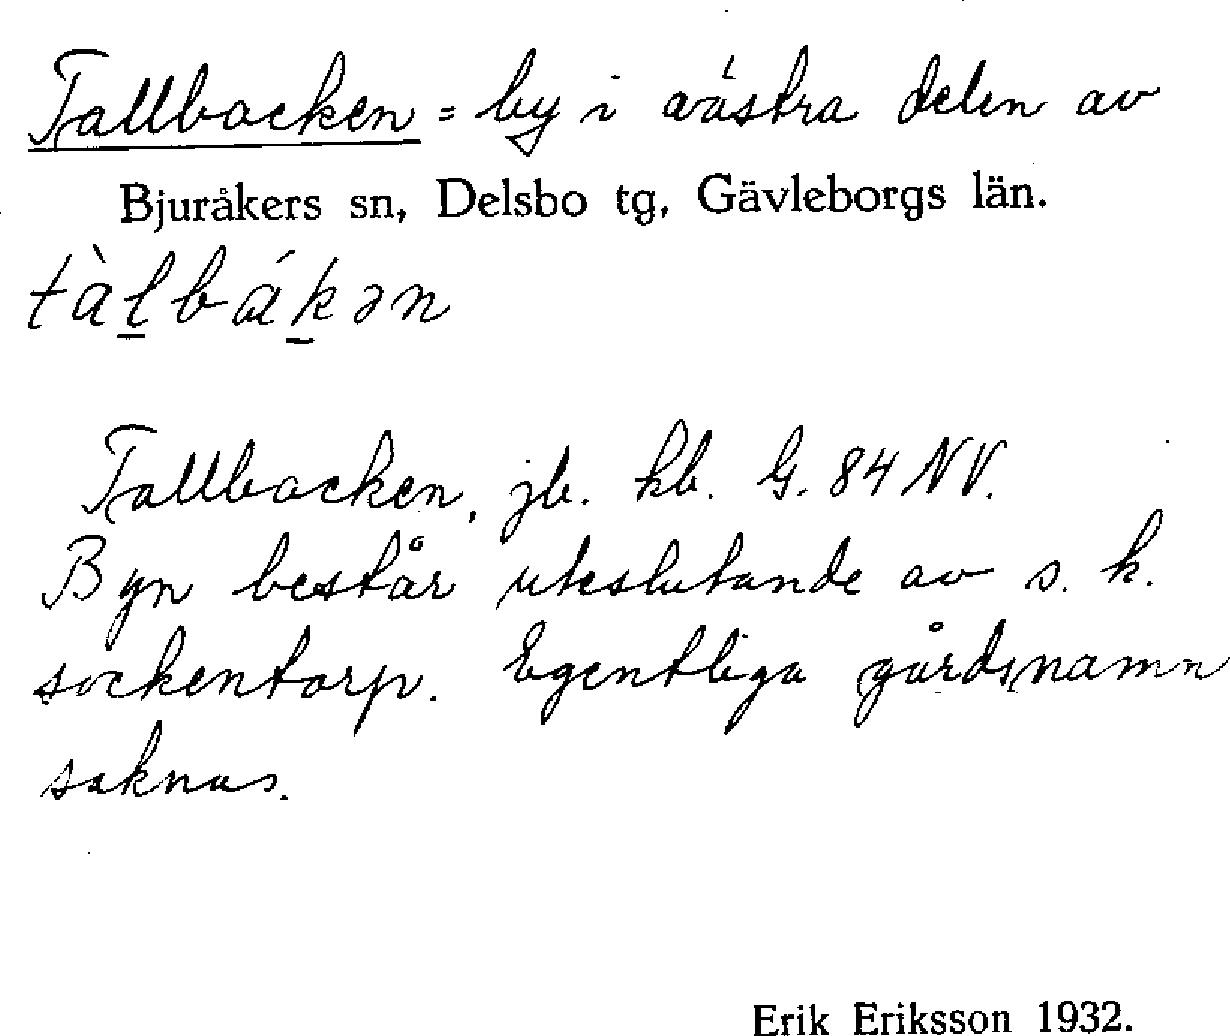 Tallbacken = by i västra delen av
Bjuråkers sn, Delsbo tg, Gävleborgs län.
tàl̲bák̲ən
Tallbacken, jb. kb. G. 84 NV.
Byn består uteslutande av s. k.
sockentorp. Egentliga gårdsnamn
saknas.
Erik Eriksson 1932.